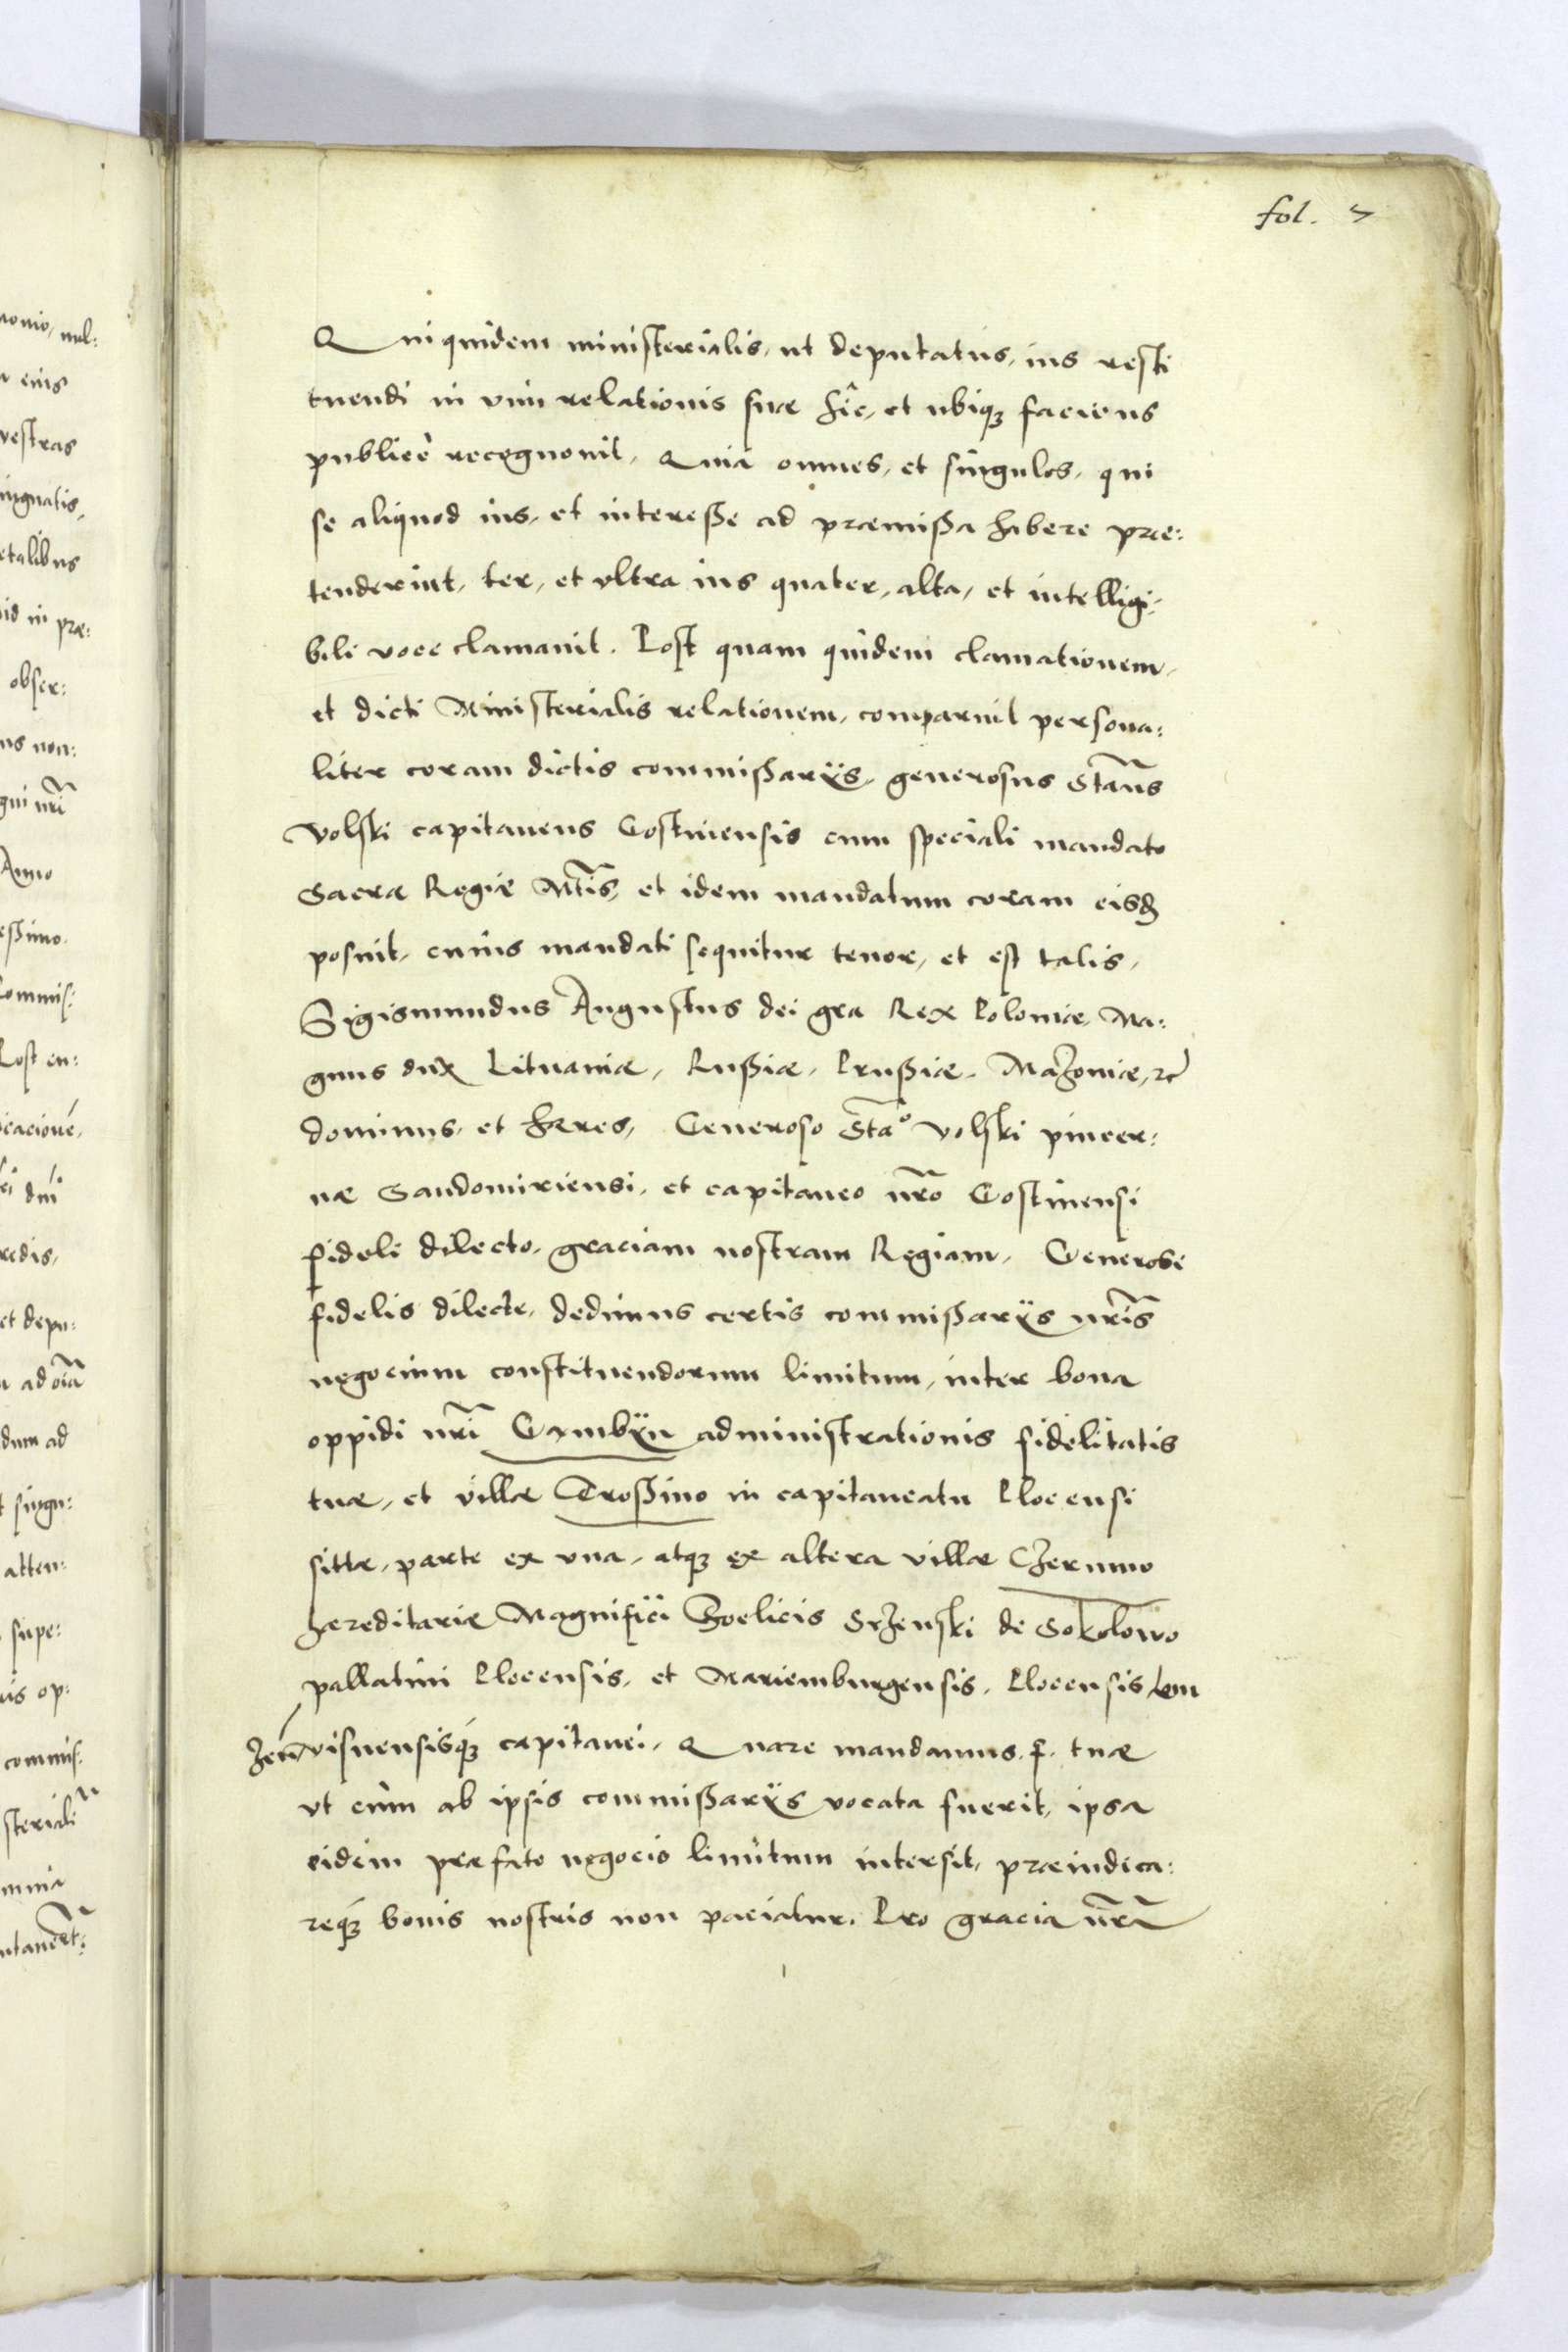 fol. 7
Qui quidem ministerialis, ut deputatus, ius resti
tuendi in vim relationis suae hîc, et ubiqз faciens
publicè recognouit, Quia omnes, et singulos, qui
se aliquod ius, et interesse ad praemissa habere prae:
tenderint, ter, et vltra ius quater, alta, et intelligi:
bili voce clamauit. Post quam quidem clamationem,
et dicti Ministerialis relationem, comparuit persona:
liter coram dictis commissarÿs, generosus Stãus
Volski capitaneus Gostinensis cum speciali mandato
Sacrae Regiae Mtis, et idem mandatum coram eisd
posuit, cuius mandati sequitur tenor, et est talis,
Sigismundus Augustus dei gra Rex Poloniae, Ma:
gnus dux Lituaniae, Russiae, Prussiae, Mazouiae, etc
dominus, et hæres, Generoso Stão Volski pincer:
nae Sandomiriensi, et capitaneo nro Gostinensi
fideli dilecto, graciam nostram Regiam, Generose
fidelis dilecte, dedimus certis commissarÿs nris
negocium constituendorum limitum, inter bona
oppidi nri Gambÿn administrationis fidelitatis
tuae, et villae Trossino in capitaneatu Plocensi
sittae, parte ex vna, atqз ex altera villae Czermno
hereditariae Magnifici Foelicis Srzenski de Sokolowo
pallatini Plocensis, et Mariemburgensis, Plocensis,
visnensisqз capitanei, Quare mandamus. f. tuae
vt cùm ab ipsis commissarÿs vocata fuerit, ipsa
eidem praefato negocio limitum intersit, praeiudica:
reqз bonis nostris non paciatur. Pro gracia nra